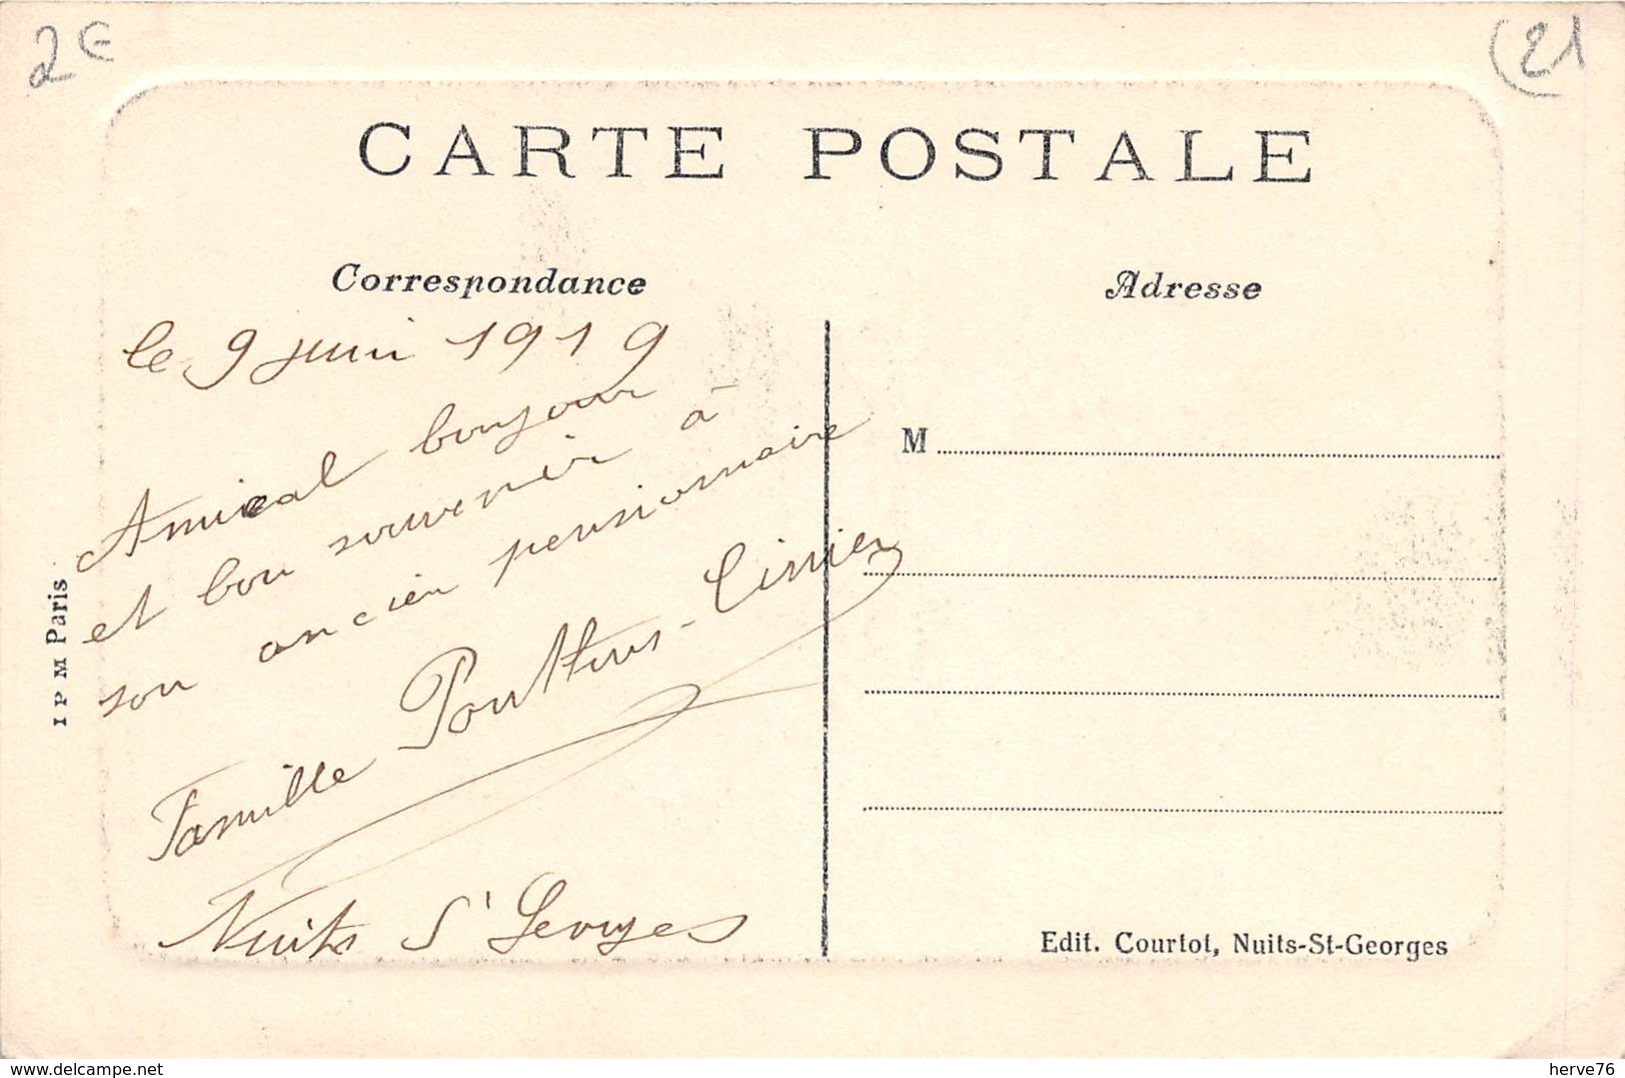 2 €
(21
CARTE POSTALE
Correspondance
Adresse
le 9 juin 1919
Amical bonjour
et bon souvenir à
son ancien pensionnaire
Famille
Nuits St Georges
M
I P M Paris
Edit. Courtot, Nuits-St-Georges
delcampe.net
herve76